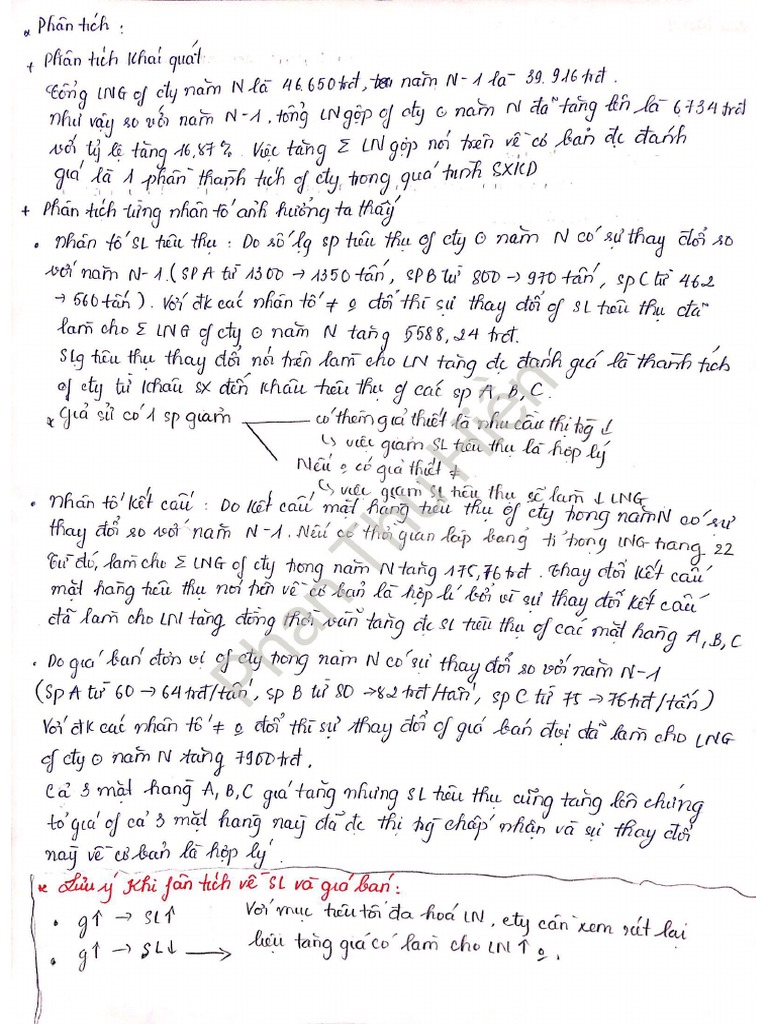 * Phân tích :
+ Phân tích Khái quát
Tổng LNG of cty năm N là 46.650 trđ, năm N-1 là 39.916 trđ.
Như vậy so với năm N-1, tổng LN gộp of cty ⊙ năm N đã tăng lên là 6734 trđ
với tỷ lệ tăng 16,87%. Việc tăng Σ LN gộp nói trên về cơ bản đc đánh
giá là 1 phần thành tích of cty trong quá trình SXKD
+ Phân tích từng nhân tố ảnh hưởng ta thấy
• Nhân tố SL tiêu thụ : Do số lg sp tiêu thụ of cty ⊙ năm N có sự thay đổi so
với năm N-1. (SP A từ 1300 → 1350 tấn, SP B từ 800 → 970 tấn, sp C từ 462
→ 560 tấn). Với đk các nhân tố ≠ o đổi thì sự thay đổi of SL tiêu thụ đã
làm cho Σ LNG of cty ⊙ năm N tăng 5588,24 trđ.
Slg tiêu thụ thay đổi nói trên làm cho LN tăng đc đánh giá là thành tích
of cty từ khâu SX đến khâu tiêu thụ of các sp A, B, C.
* Giả sử có 1 sp giảm
có thêm giả thiết là nhu cầu thị tg ↓
↳ việc giảm SL tiêu thụ là hợp lý
Nếu o có giả thiết ≠
↳ việc giảm SL tiêu thụ sẽ làm ↓ LNG
• Nhân tố Kết cấu : Do Kết cấu mặt hàng tiêu thụ of cty trong năm N có sự
thay đổi so với năm N-1. Nếu có thời gian lập bảng tỉ trọng LNG trang 22
Từ đó, làm cho Σ LNG of cty trong năm N tăng 175,76 trđ. Thay đổi kết cấu
mặt hàng tiêu thụ nói trên về cơ bản là hợp lí bởi vì sự thay đổi kết cấu
đã làm cho LN tăng đồng thời vẫn tăng đc SL tiêu thụ of các mặt hàng A, B, C
• Do giá bán đơn vị of cty trong năm N có sự thay đổi so với năm N-1
(Sp A từ 60 → 64 trđ/tấn, sp B từ 80 → 82 trđ/tấn, sp C từ 75 → 76 trđ/tấn)
Với đk các nhân tố ≠ o đổi thì sự thay đổi of giá bán đvị đã làm cho LNG
of cty ⊙ năm N tăng 7900 trđ.
Cả 3 mặt hàng A, B, C giá tăng nhưng SL tiêu thụ cũng tăng lên chứng
tỏ giá of cả 3 mặt hàng này đã đc thị trg chấp nhận và sự thay đổi
này về cơ bản là hợp lý.
* Lưu ý Khi fân tích về SL và giá bán:
• g↑ → SL↑
• g↑ → SL↓ →
Với mục tiêu tối đa hoá LN, cty cần xem xét lại
liệu tăng giá có làm cho LN ↑ o.
Phan Thu Hiền